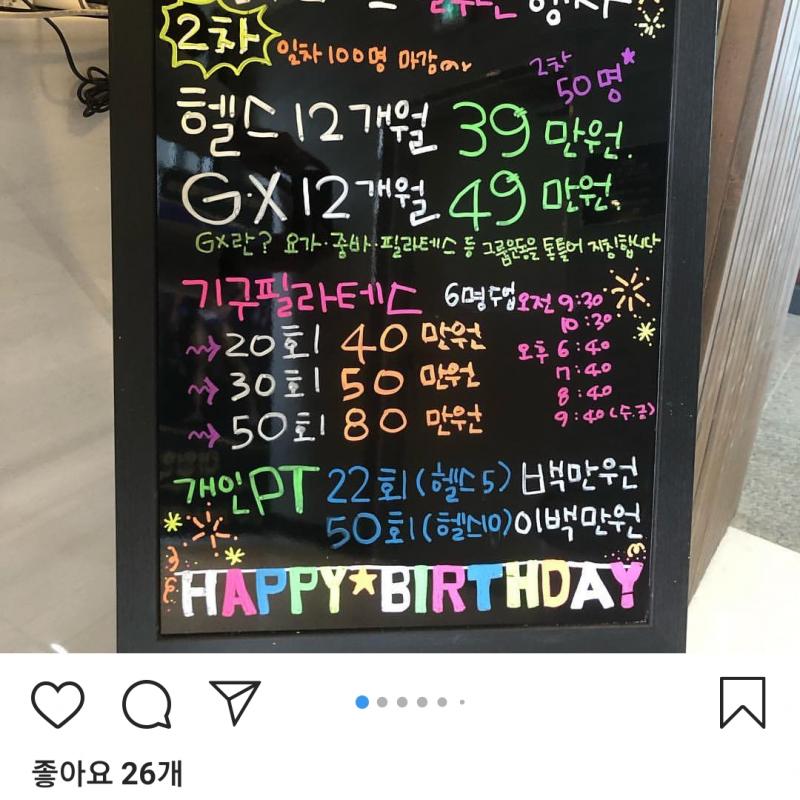 2차 일차 100명 마감
2차 50명
헬스 12개월 39만원.
G.X 12개월 49만원.
GX란? 요가·줌바·필라테스 등 그룹운동을 통틀어 지칭합니다
기구필라테스 6명수업 오전 9:30
10:30
→ 20회 40만원 오후 6:40
7:40
→ 30회 50만원 8:40
→ 50회 80만원 9:40 (수.금)
개인PT 22회(헬스5) 백만원
50회(헬스10) 이백만원
HAPPY★BIRTHDAY
좋아요 26개